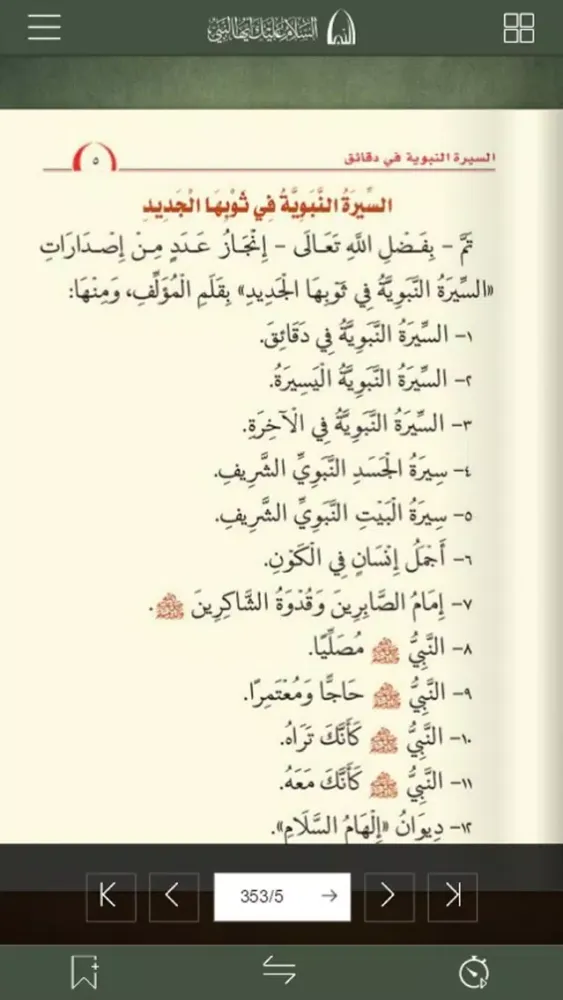 السلام عليك أيها النبي
السيرة النبوية في دقائق
٥
السِّيرَةُ النَّبَوِيَّةُ فِي ثَوْبِهَا الْجَدِيدِ
تَمَّ - بِفَضْلِ اللَّهِ تَعَالَى - إِنْجَازُ عَدَدٍ مِنْ إِصْدَارَاتِ
«السِّيرَةُ النَّبَوِيَّةُ فِي ثَوْبِهَا الْجَدِيدِ» بِقَلَمِ الْمُؤَلِّفِ، وَمِنْهَا:
١- السِّيرَةُ النَّبَوِيَّةُ فِي دَقَائِقَ.
٢- السِّيرَةُ النَّبَوِيَّةُ الْيَسِيرَةُ.
٣- السِّيرَةُ النَّبَوِيَّةُ فِي الْآخِرَةِ.
٤- سِيرَةُ الْجَسَدِ النَّبَوِيِّ الشَّرِيفِ.
٥- سِيرَةُ الْبَيْتِ النَّبَوِيِّ الشَّرِيفِ.
٦- أَجْمَلُ إِنْسَانٍ فِي الْكَوْنِ.
٧- إِمَامُ الصَّابِرِينَ وَقُدْوَةُ الشَّاكِرِينَ ﷺ.
٨- النَّبِيُّ ﷺ مُصَلِّيًا.
٩- النَّبِيُّ ﷺ حَاجًّا وَمُعْتَمِرًا.
١٠- النَّبِيُّ ﷺ كَأَنَّكَ تَرَاهُ.
١١- النَّبِيُّ ﷺ كَأَنَّكَ مَعَهُ.
١٢- دِيوَانُ «إِلْهَامُ السَّلَامِ».
353/5